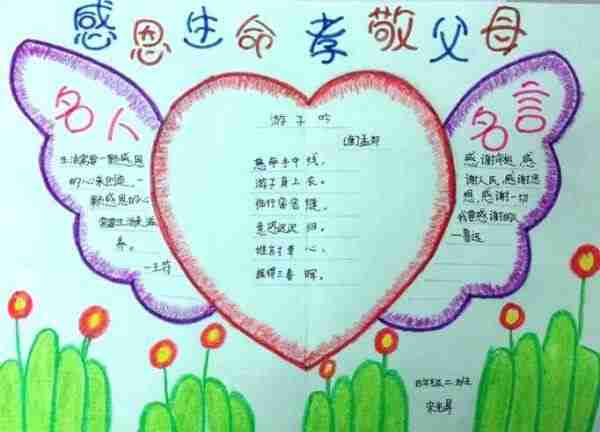 感恩生命 孝敬父母
名人
生活需要一颗感恩
的心来创造，一
颗感恩的心
需要生活来滋
养。
—王符
游子吟
(唐)孟郊
慈母手中线，
游子身上衣。
临行密密缝，
意恐迟迟归。
谁言寸草心，
报得三春晖。
名言
感谢命运，感
谢人民，感谢思
想，感谢一切
我要感谢的人
—鲁迅
四年级二班